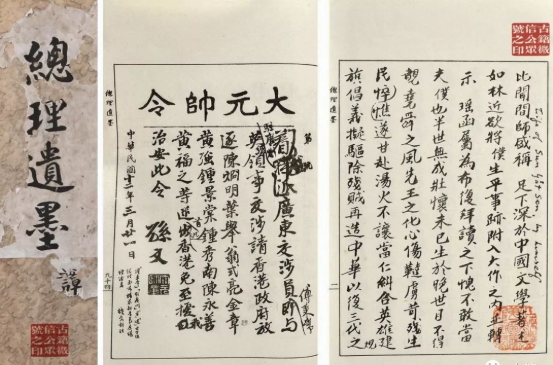 總理遺墨
古籍微
信公眾
號之印
總理遺墨
大元帥令
第 號
廣東交涉員即與
傅秉常
英領事交涉請香港政府放
逐陳炯明葉舉翁式亮金章
黃強鍾景棠鍾秀南陳永善
黃福之等逆出香港免至擾我
治安此令 孫文
中華民國十二年三月廿一日
古籍微
信公眾
號之印
比聞間師盛稱 足下深於中國文學著述
如林近欲將僕生平事跡附入大作之內並轉
示 瑤函屬為布復拜讀之下愧不敢當
夫僕也半世無成壯懷未已生於晚世目不得
覩堯舜之風先王之化心傷韃虜苛殘生
民憔悴遂甘赴湯火不讓當仁糾合英雄建
旗倡義擬驅除殘賊再造中華以復三代之
總理遺墨